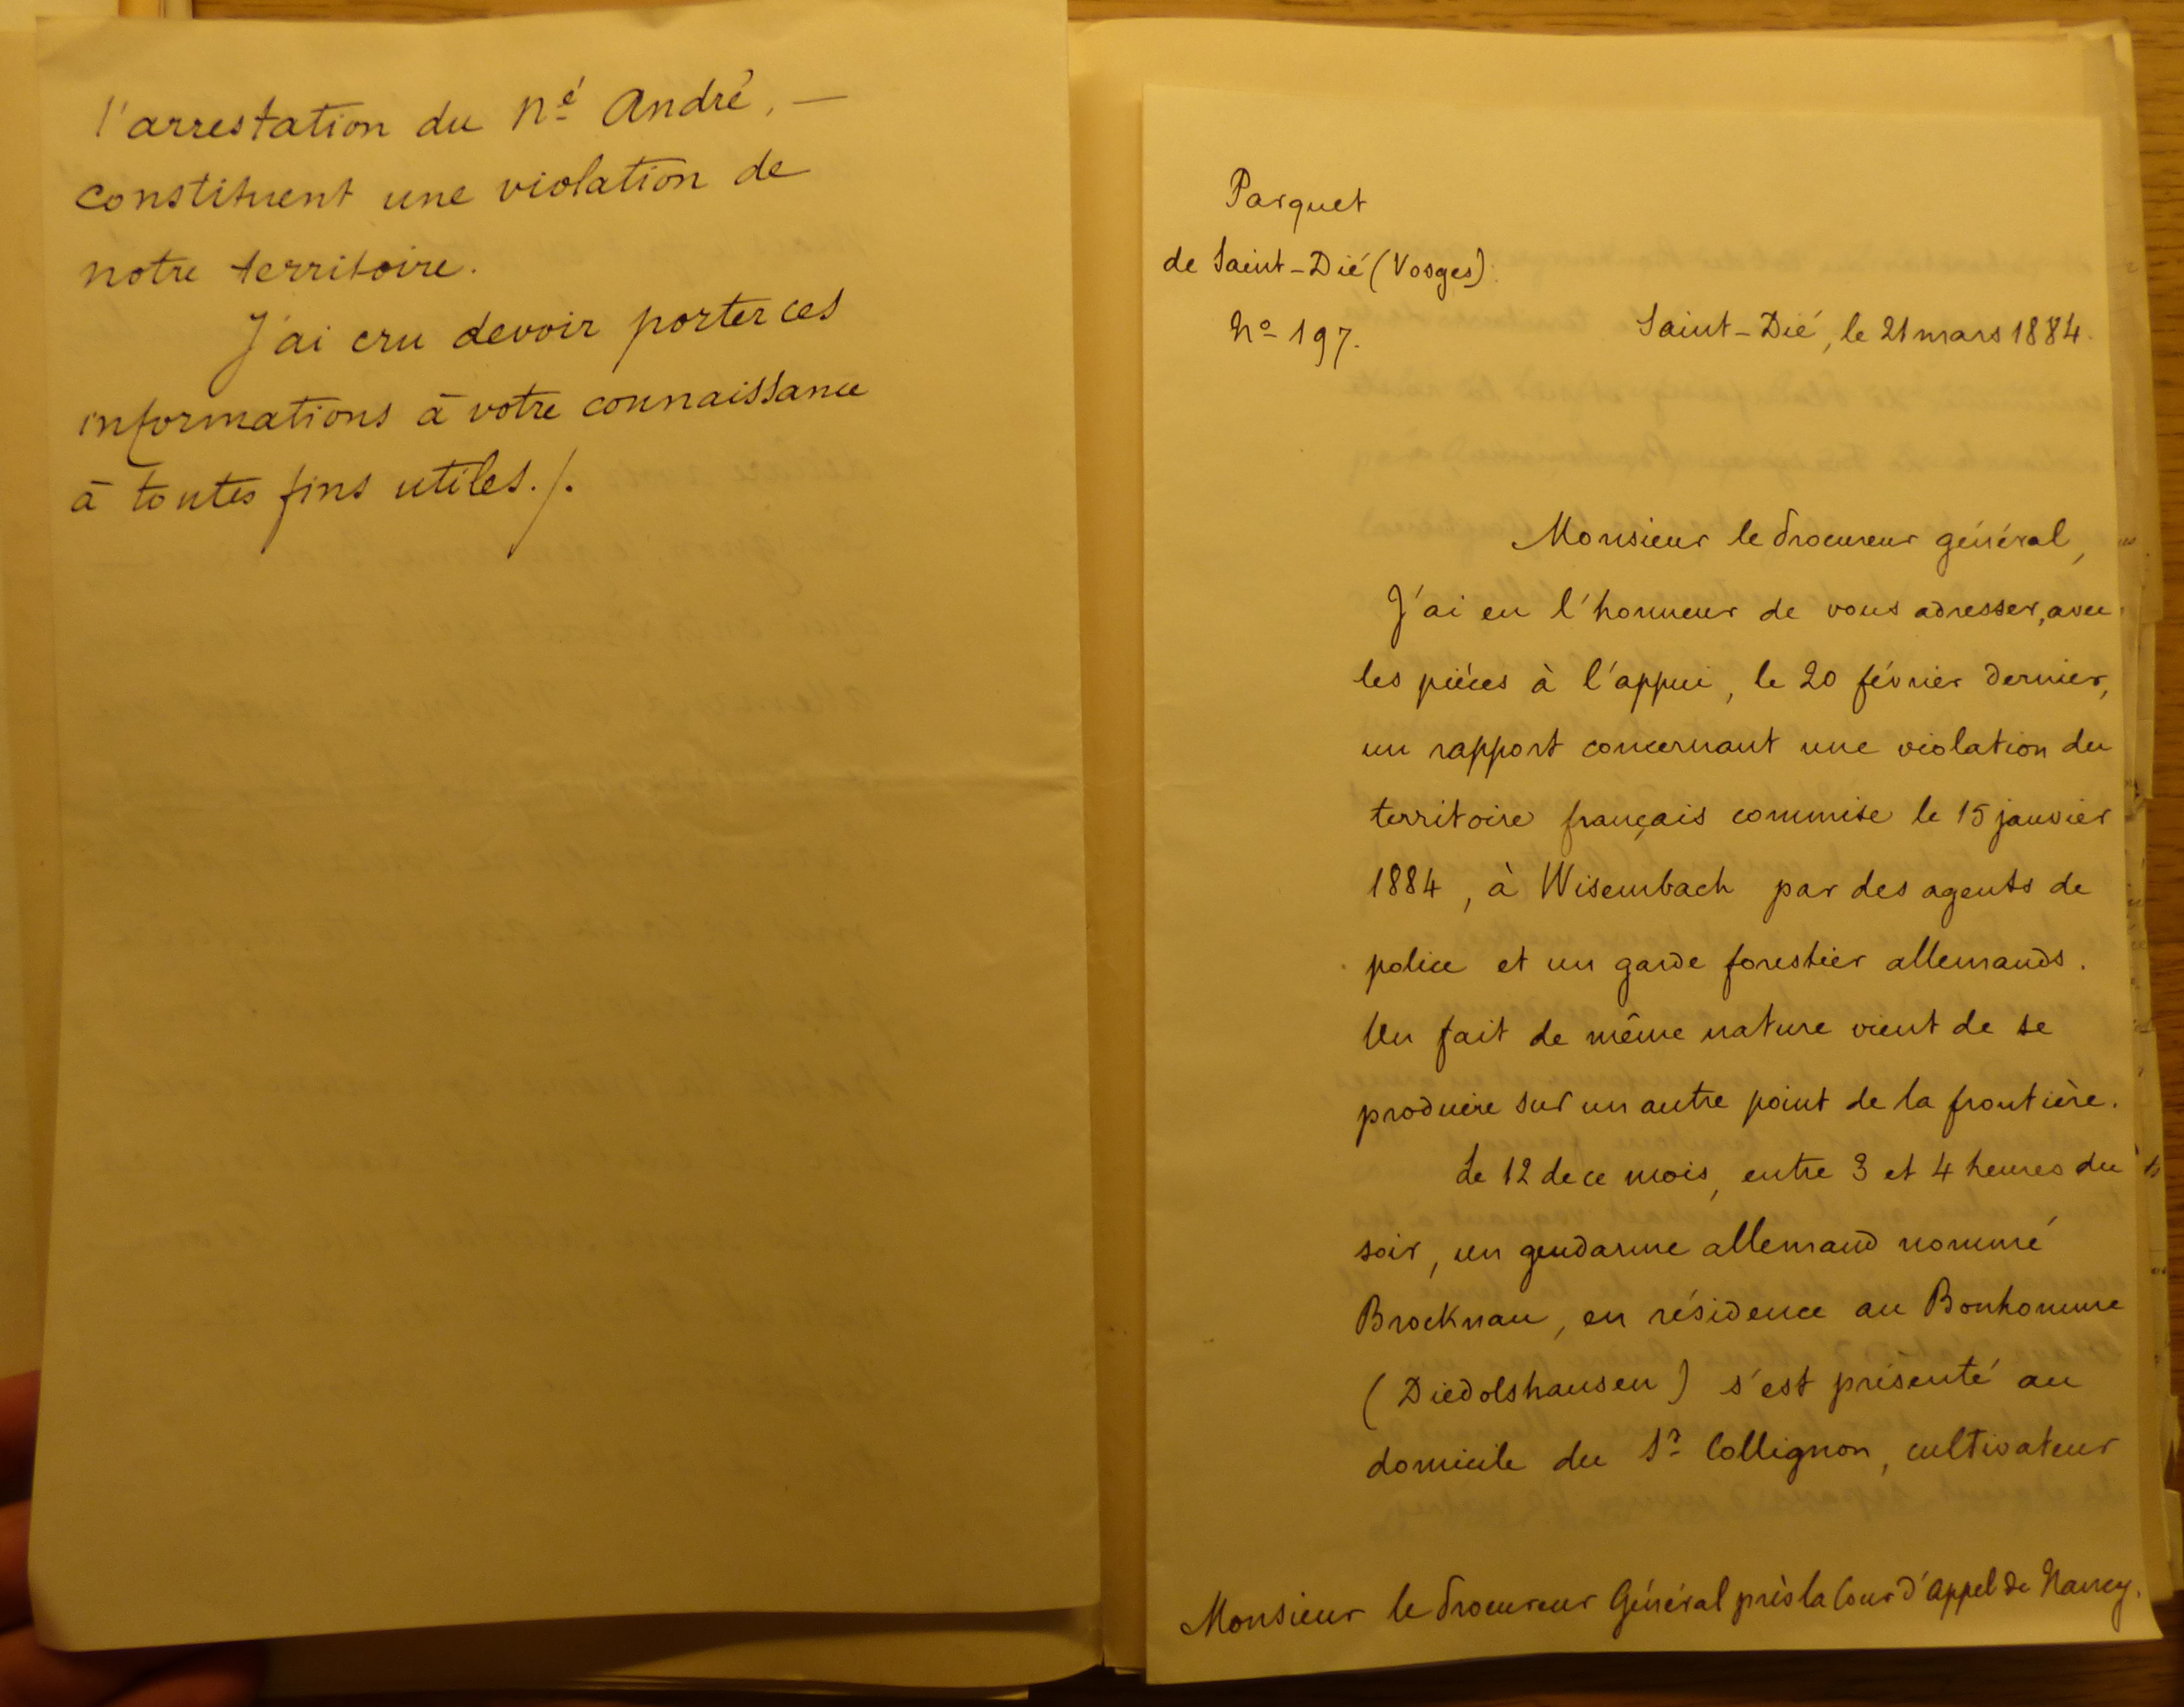 l'arrestation du né André, —
constituent une violation de
notre territoire.
J'ai cru devoir porter ces
informations à votre connaissance
à toutes fins utiles./.
Parquet
de Saint-Dié (Vosges).
No 197.
Saint-Dié, le 21 mars 1884.
Monsieur le Procureur général,
J'ai eu l'honneur de vous adresser, avec
les pièces à l'appui, le 20 février dernier,
un rapport concernant une violation du
territoire français commise le 15 janvier
1884, à Wisembach par des agents de
police et un garde forestier allemands.
Un fait de même nature vient de se
produire sur un autre point de la frontière.
Le 12 de ce mois, entre 3 et 4 heures du
soir, un gendarme allemand nommé
Brocknau, en résidence au Bonhomme
(Diedolshausen) s'est présenté au
domicile du Sr Collignon, cultivateur
Monsieur le Procureur Général près la Cour d'Appel de Nancy.